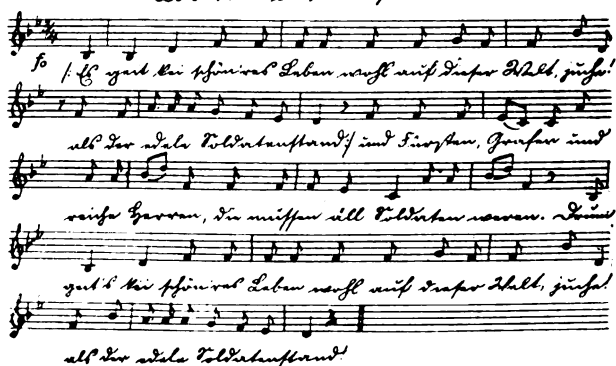 fo /: Es geit kei schön'res Leben wohl auf dieser Welt, juche!
als der edele Soldatenstand :/ und Fürsten, Grafen und
reiche Herren, die müssen äll Soldaten weren. Drum
geit's kei schön'res Leben wohl auf dieser Welt, juche!
als der edele Soldatenstand!